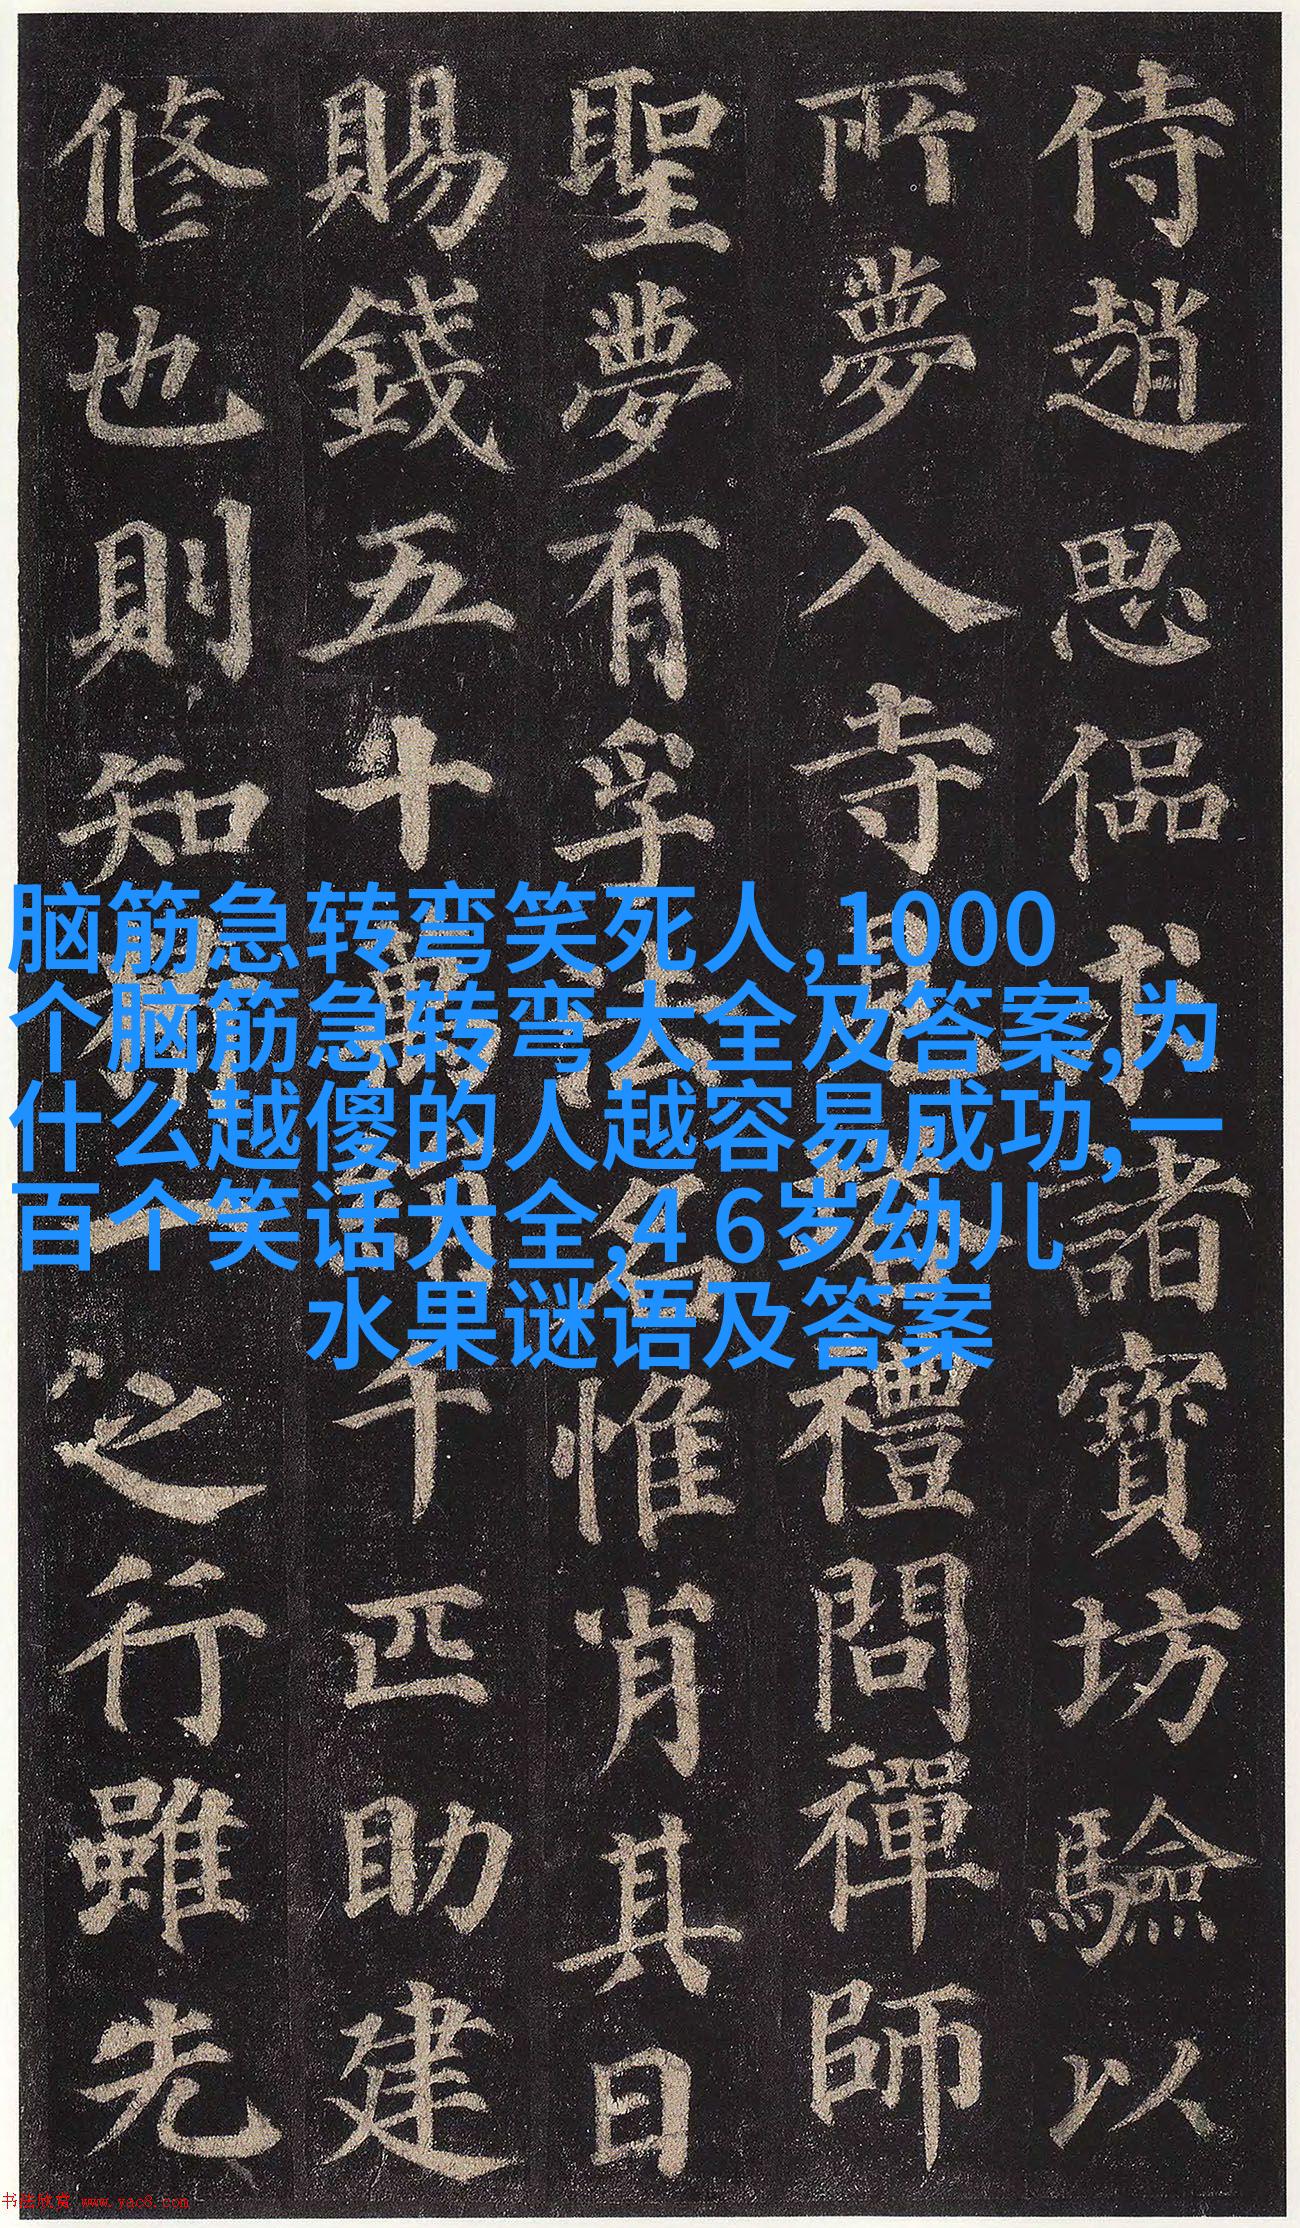 侍趙思偘求諸寶坊驗以
所夢入寺見塔禮問禪師
聖夢有孚法名惟肖其日
賜錢五十萬絹千匹助建
修也則知精一之行雖先
脑筋急转弯笑死人,1000
个脑筋急转弯大全及答案,为
什么越傻的人越容易成功,一
百个笑话大全,4 6岁幼儿
水果谜语及答案
书法欣赏 www.yac8.com